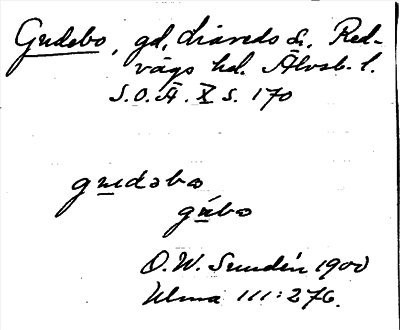 Gudebo, gd, Liared s:n. Red-
vägs hd. Älvsb. l.
S.O.Ä. X s. 170
gudəbo
gúbo
O.W. Sundén 1900
Ulma 111:276.